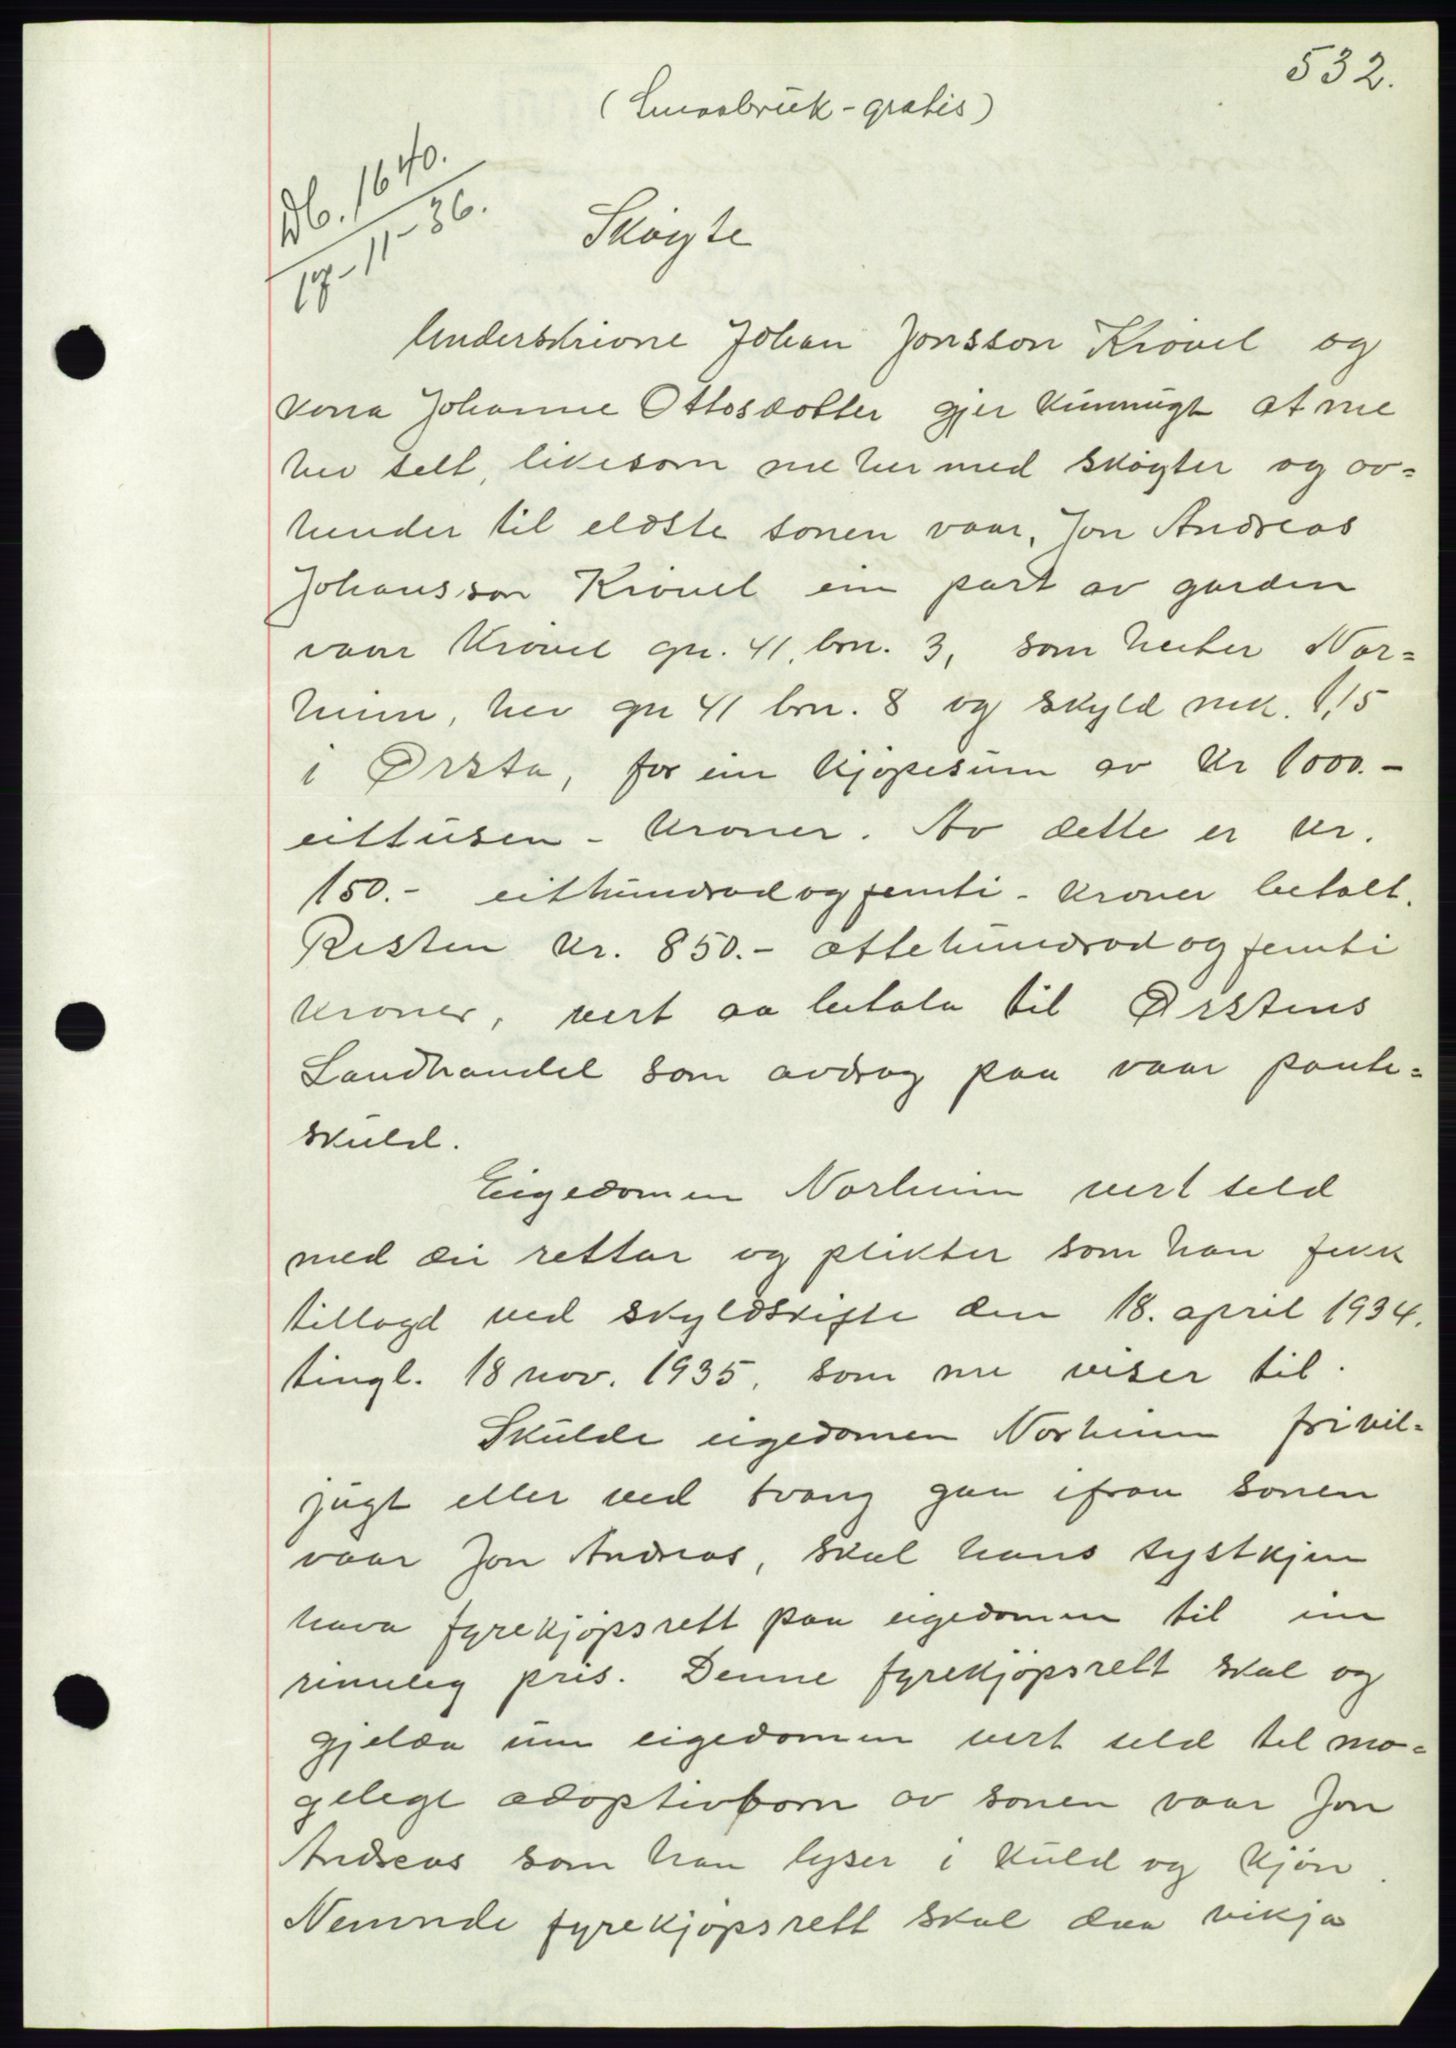 532.
(Smaabruk - gratis)
Db. 1640.
17-11-36.
Skøyte
Underskrivne Johan Jonsson Krøvel og
kona Johanne Ottosdotter gjer kunnugt at me
hev selt, likesom me her med skøyter og av=
hender til eldste sonen vaar, Jon Andreas
Johansson Krøvel ein part av garden
vaar Krøvel gn. 41, brn. 3, som heiter Nor=
heim, hev gn 41 brn. 8 og skyld mk. 1,15
i Ørsta, for ein kjøpesum av kr 1000.-
eittusen - kroner. Av dette er kr.
150.- eithundrad og femti - kroner betalt.
Resten kr. 850.- åttehundrad og femti
kroner, vert aa betala til Ørstens
Landhandel som avdrag paa vaar pante=
skuld.
Eigedomen Norheim vert seld
med dei rettar og plikter som han fekk
tillagd ved skyldskifte den 18. april 1934.
tingl. 18 nov. 1935, som me viser til.
Skulde eigedomen Norheim frivil=
jugt eller ved tvang gaa ifraa sonen
vaar Jon Andreas, skal hans systkjen
hava fyrekjøpsrett paa eigedomen til ein
rimeleg pris. Denne fyrekjøpsrett skal og
gjelda um eigedomen vert seld til mo=
gelegt adoptivborn av sonen vaar Jon
Andreas som han lyser i kuld og kjøn.
Nemnde fyrekjøpsrett skal daa vikja